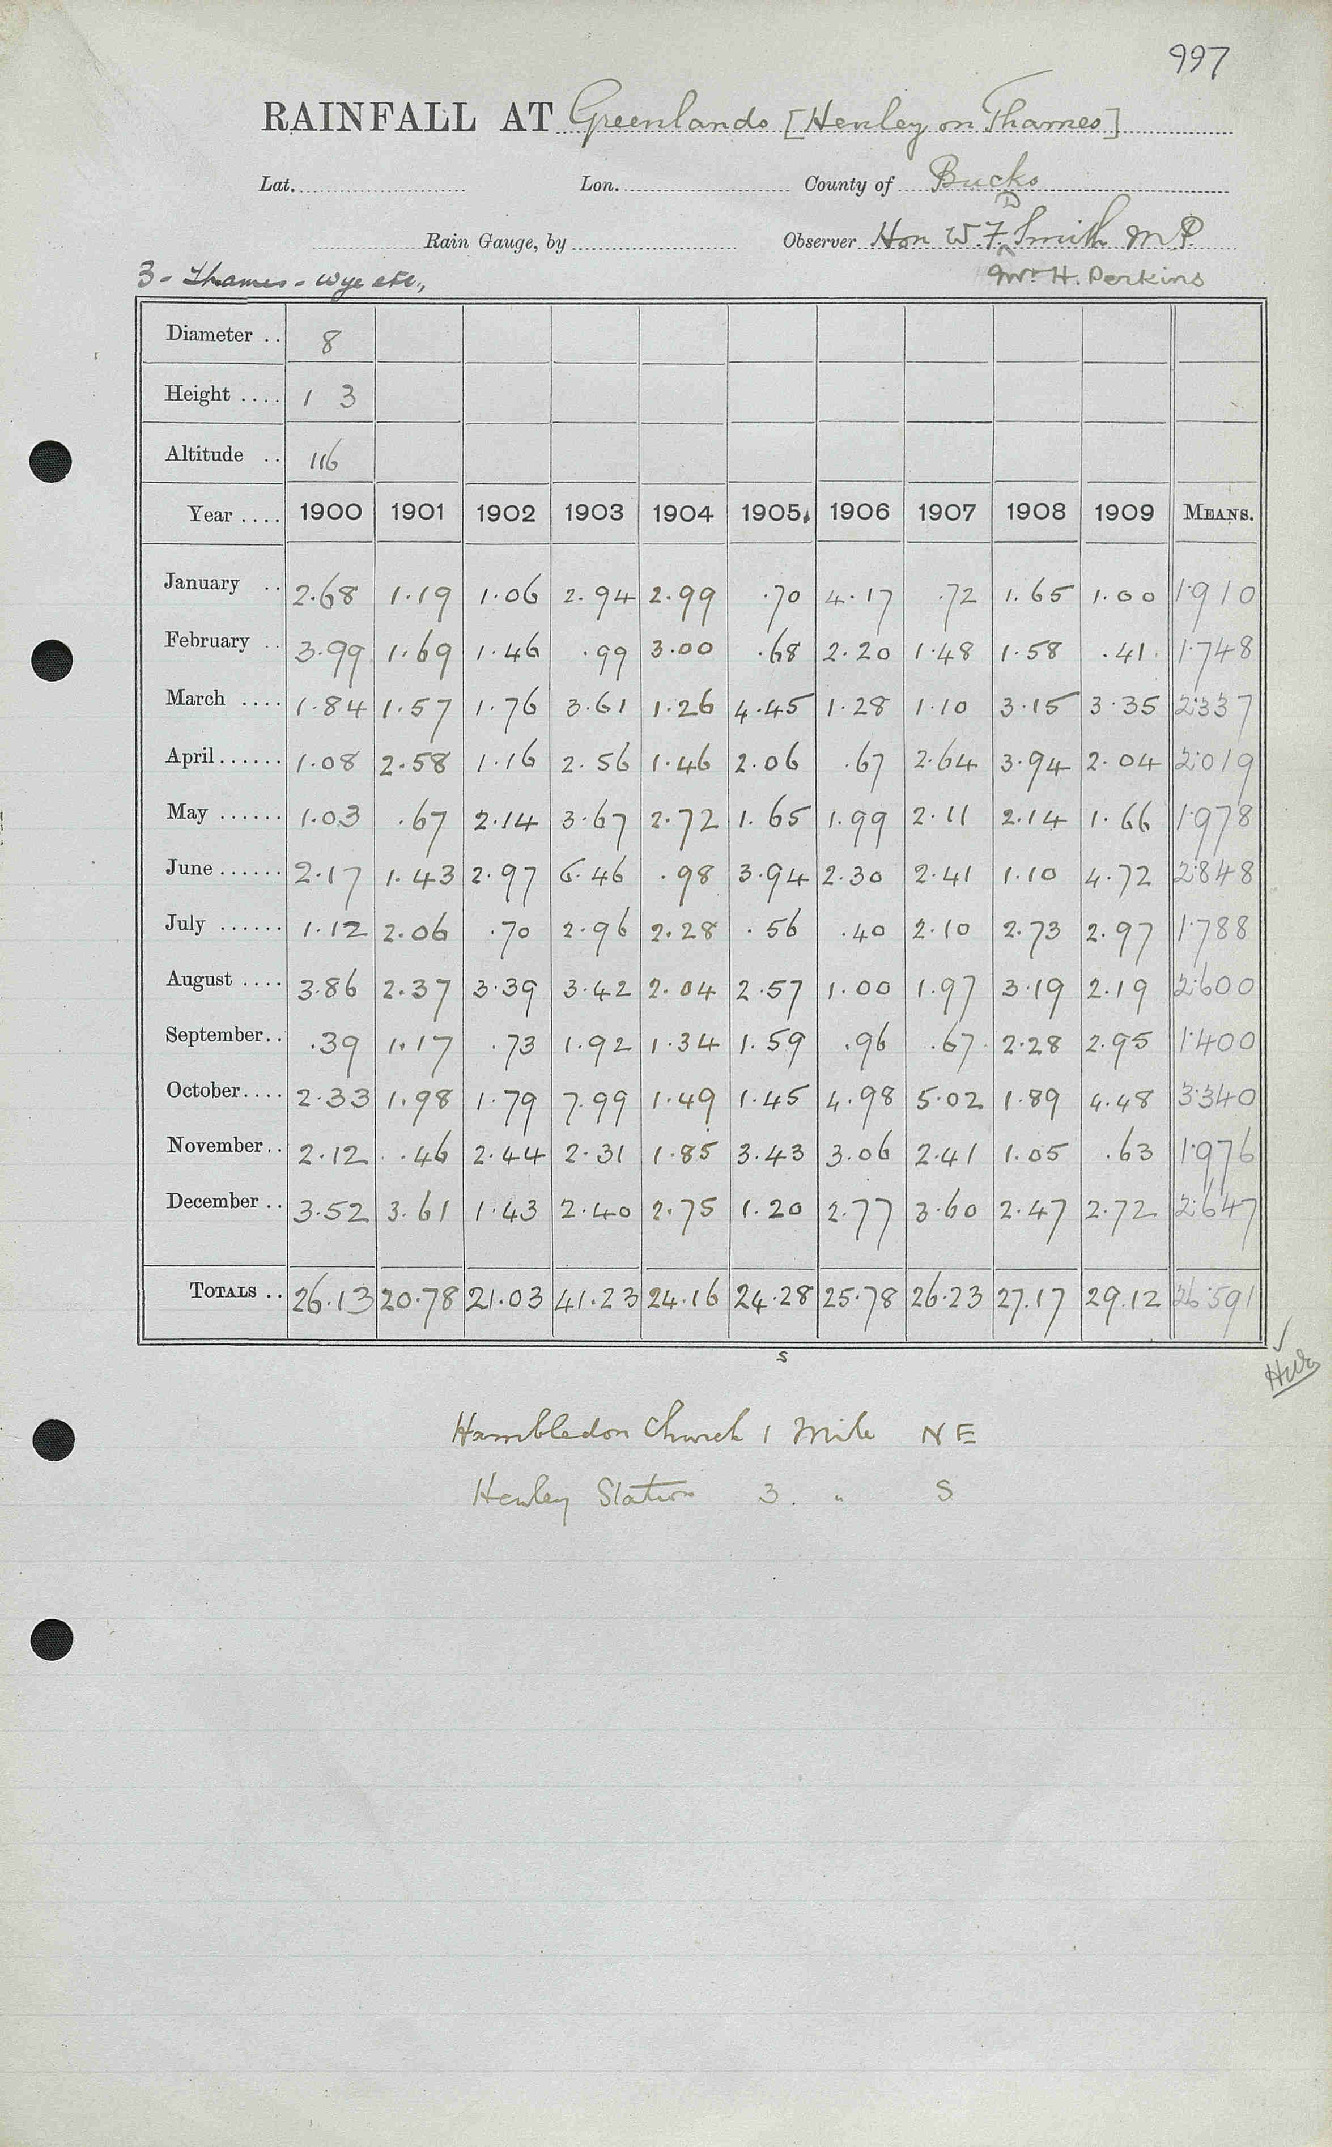 997
RAINFALL AT Greenlands [Henley on Thames]
Lat. Lon. County of Bucks
D
Rain Gauge, by Observer Hon W.F. Smith MP
3 - Thames - Wye etc., Mr H. Perkins
Diameter .. 8
Height .... 1 3
Altitude .. 116
Year .... 1900 1901 1902 1903 1904 1905 1906 1907 1908 1909 MEANS.
January .. 2.68 1.19 1.06 2.94 2.99 .70 4.17 .72 1.65 1.00 1.910
February .. 3.99 1.69 1.46 .99 3.00 .68 2.20 1.48 1.58 .41 1.748
March .... 1.84 1.57 1.76 3.61 1.26 4.45 1.28 1.10 3.15 3.35 2.337
April...... 1.08 2.58 1.16 2.56 1.46 2.06 .67 2.64 3.94 2.04 2.019
May ...... 1.03 .67 2.14 3.67 2.72 1.65 1.99 2.11 2.14 1.66 1.978
June ...... 2.17 1.43 2.97 6.46 .98 3.94 2.30 2.41 1.10 4.72 2.848
July ...... 1.12 2.06 .70 2.96 2.28 .56 .40 2.10 2.73 2.97 1.788
August .... 3.86 2.37 3.39 3.42 2.04 2.57 1.00 1.97 3.19 2.19 2.600
September.. .39 1.17 .73 1.92 1.34 1.59 .96 .67 2.28 2.95 1.400
October.... 2.33 1.98 1.79 7.99 1.49 1.45 4.98 5.02 1.89 4.48 3.340
November.. 2.12 .46 2.44 2.31 1.85 3.43 3.06 2.41 1.05 .63 1.976
December .. 3.52 3.61 1.43 2.40 2.75 1.20 2.77 3.60 2.47 2.72 2.647
TOTALS .. 26.13 20.78 21.03 41.23 24.16 24.28 25.78 26.23 27.17 29.12 26.591
s
Hambledon Church 1 Mile NE
Henley Station 3 . " S